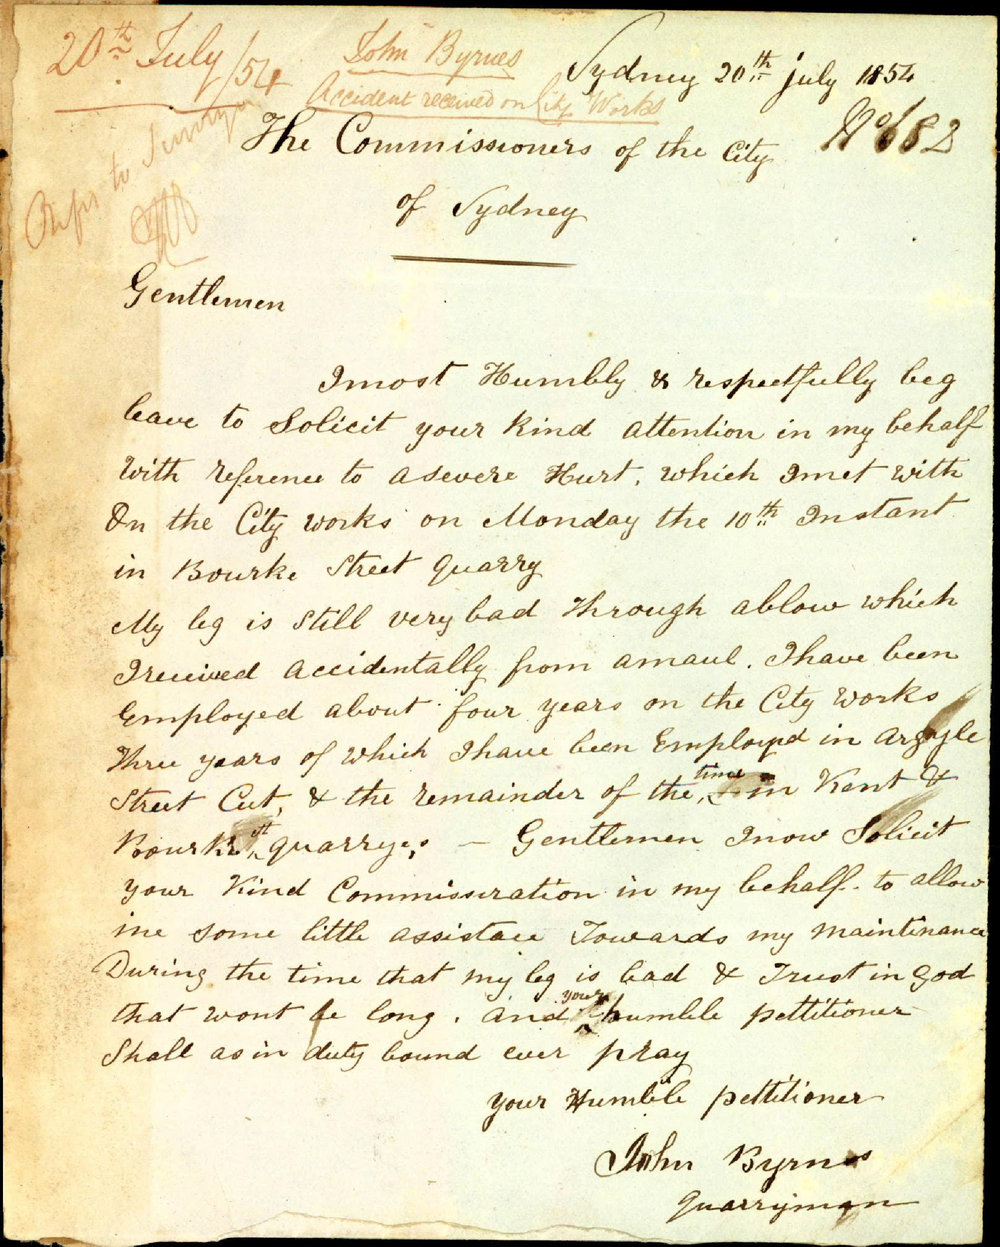 20th July/54
John Byrnes
Accident received on City Works
Sydney 20th July 1854
No 682
The Commissioners of the City
of Sydney
Gentlemen
I most Humbly & respectfully beg
leave to Solicit your kind attention in my behalf
With reference to a severe Hurt, which I met with
On the City works on Monday the 10th Instant
in Bourke Street quarry
My leg is still very bad through a blow which
I received accidentally from a maul. I have been
Employed about four years on the City works
three years of which I have been Employd in Argyle
Street Cut, & the remainder of the time in Kent &
Bourke st quarrys, – Gentlemen I now Solicit
your Kind Commisseration in my behalf. to allow
me some little assistace Towards my maintinance
During the time that my leg is bad & Trust in god
that wont be long. and your humble pettitioner
Shall as in duty bound ever pray
your Humble pettitioner
John Byrnes
quarryman